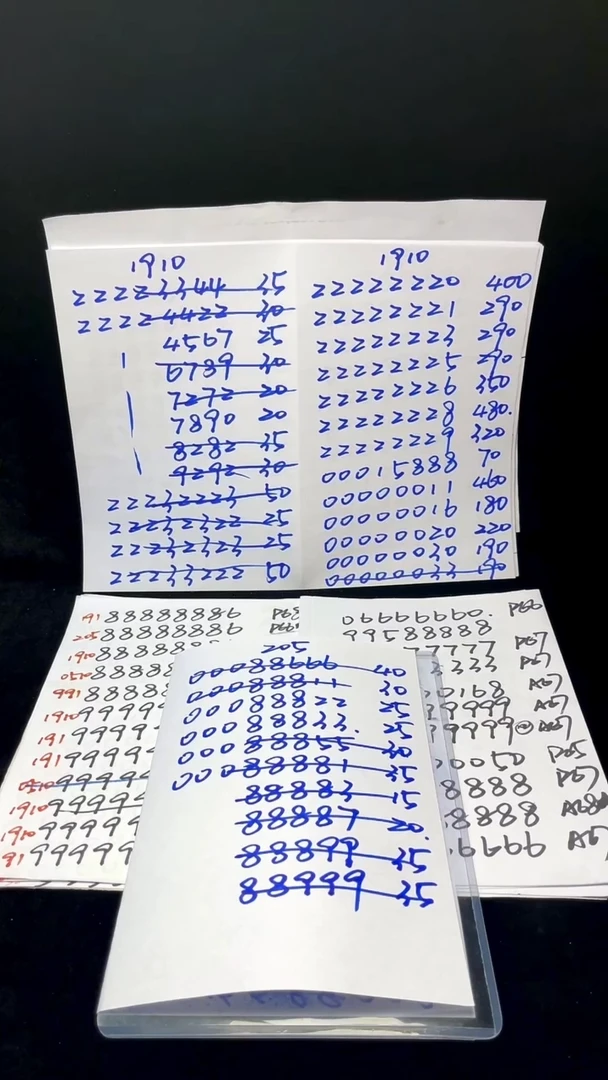 1910
22223344 35
22224422 30
4567 25
6789 30
7272 20
7890 20
8282 35
9292 30
22232223 50
22232322 25
22232323 25
22233222 50
1910
22222220 400
22222221 290
22222223 290
22222225 290
22222226 350
22222228 480.
22222229 320
00015888 70
00000011 460
00000016 180
00000020 220
00000030 190
00000033 190
191 88888886
205 88888886
1910 88888
0510 88888
991 88888
1910 99999
191 99999
191 99999
0910 99999
1910 99999
1910 99999
91 99999
06666660. P66
99588888
77777 P67
3333 P67
00168 A67
9999 A67
9999 A67
00050 P65
8888 P67
8888 A68
9999 A67
205
00088666 40
00088811 30
00088822 25
00088833. 25
00088855 30
00088881 35
88883 15
88887 20.
88899 35
88999 35